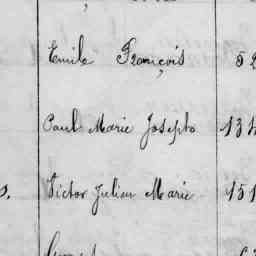 Emile François 52
Paul Marie Joseph 134
s, Victor Julien Marie 151